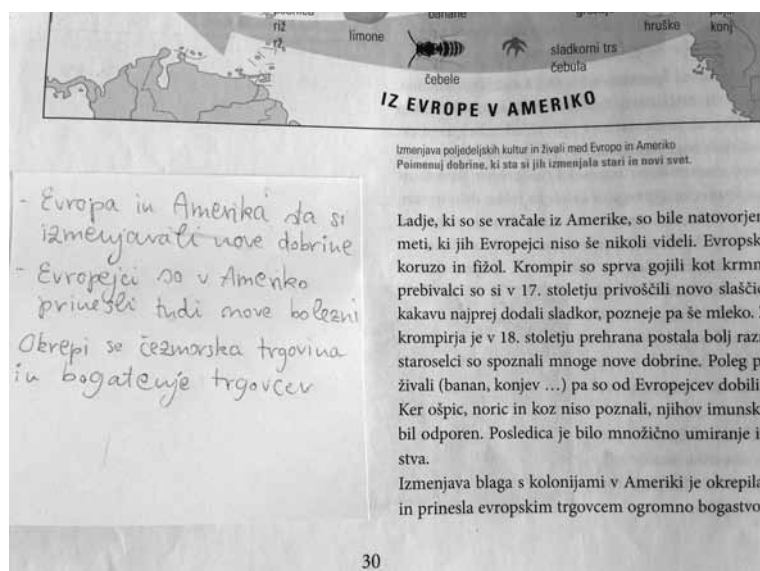 banane
riž
limone
hruške
konj
sladkorni trs
čebula
čebele
IZ EVROPE V AMERIKO
Izmenjava poljedeljskih kultur in živali med Evropo in Ameriko
Poimenuj dobrine, ki sta si jih izmenjala stari in novi svet.
- Evropa in Amerika sta si
izmenjavali nove dobrine
- Evropejci so v Ameriko
prinesli tudi nove bolezni
Okrepi se čezmorska trgovina
in bogatenje trgovcev
Ladje, ki so se vračale iz Amerike, so bile natovorjen
meti, ki jih Evropejci niso še nikoli videli. Evropsk
koruzo in fižol. Krompir so sprva gojili kot krmn
prebivalci so si v 17. stoletju privoščili novo slaščic
kakavu najprej dodali sladkor, pozneje pa še mleko.
krompirja je v 18. stoletju prehrana postala bolj razn
staroselci so spoznali mnoge nove dobrine. Poleg p
živali (banan, konjev ...) pa so od Evropejcev dobili
Ker ošpic, noric in koz niso poznali, njihov imunsk
bil odporen. Posledica je bilo množično umiranje i
stva.
Izmenjava blaga s kolonijami v Ameriki je okrepila
in prinesla evropskim trgovcem ogromno bogastvo
30